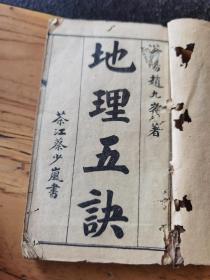 陽趙九峯著
地理五訣
茶江蔡少嵐書